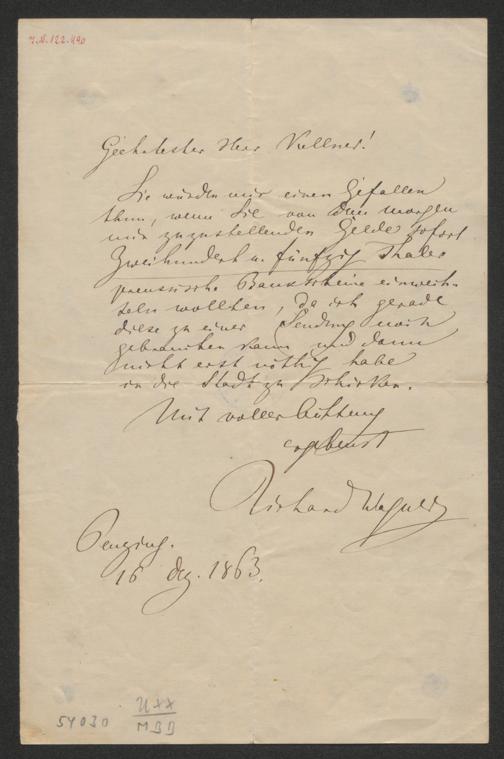 I.N. 122.490
Geehrtester Herr Kullner!
Sie würden mir einen Gefallen
thun, wenn Sie von dem morgen
mir zuzustellenden Gelde sofort
Zweihundert u. fünfzig Thaler
preussische Bankscheine einwech-
seln wollten, da ich gerade
diese zu einer Sendung
gebrauchen kann und dann
nicht erst nöthig habe
in die Stadt zu schicken.
Mit voller Achtung
ergebenst
Richard Wagner
Penzing.
16 Dez. 1863.
54030
MBB